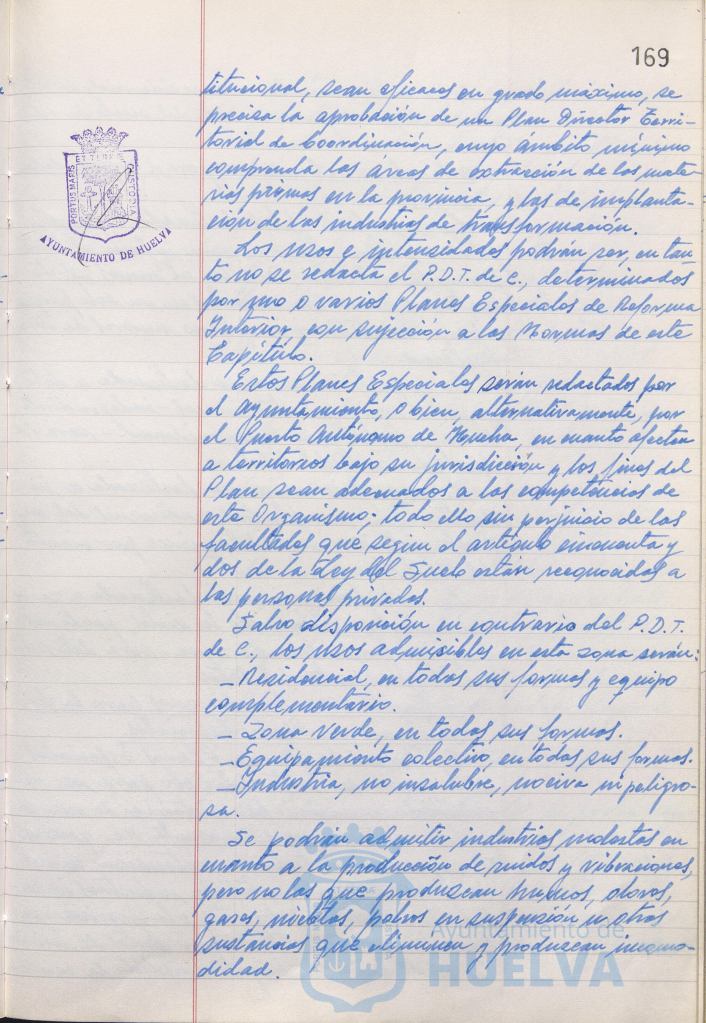 169
titucional, sean eficaces en grado máximo, se
precisa la aprobación de un Plan Director Terri-
torial de Coordinación, cuyo ámbito mínimo
comprenda las áreas de extracción de las mate-
rias primas en la provincia, y las de implanta-
ción de las industrias de transformación.
Los usos e intensidades podrán ser, en tan-
to no se redacta el P.D.T. de C., determinados
por uno o varios Planes Especiales de Reforma
Interior, con sujección a las Normas de este
Capítulo.
Estos Planes Especiales serán redactados por
el Ayuntamiento, o bien, alternativamente, por
el Puerto Autónomo de Huelva, en cuanto afecten
a territorios bajo su jurisdicción y los fines del
Plan sean adecuados a las competencias de
este Organismo; todo ello sin perjuicio de las
facultades que según el artículo cincuenta y
dos de la Ley del Suelo están reconocidas a
las personas privadas.
Salvo disposición en contrario del P.D.T.
de C., los usos admisibles en esta zona serán:
_Residencial, en todas sus formas y equipo
complementario.
_Zona verde, en todas sus formas.
_Equipamiento colectivo, en todas sus formas.
_Industria, no insalubre, nociva ni peligro-
sa.
Se podrán admitir industrias molestas en
cuanto a la producción de ruidos y vibraciones,
pero no las que produzcan humos, olores,
gases, nieblas, polvos en suspensión u otras
sustancias que eliminen y produzcan incomo-
didad.
PORTUS MARIS
ET TERRE
CUSTODIA
AYUNTAMIENTO DE HUELVA
Ayuntamiento de
HUELVA